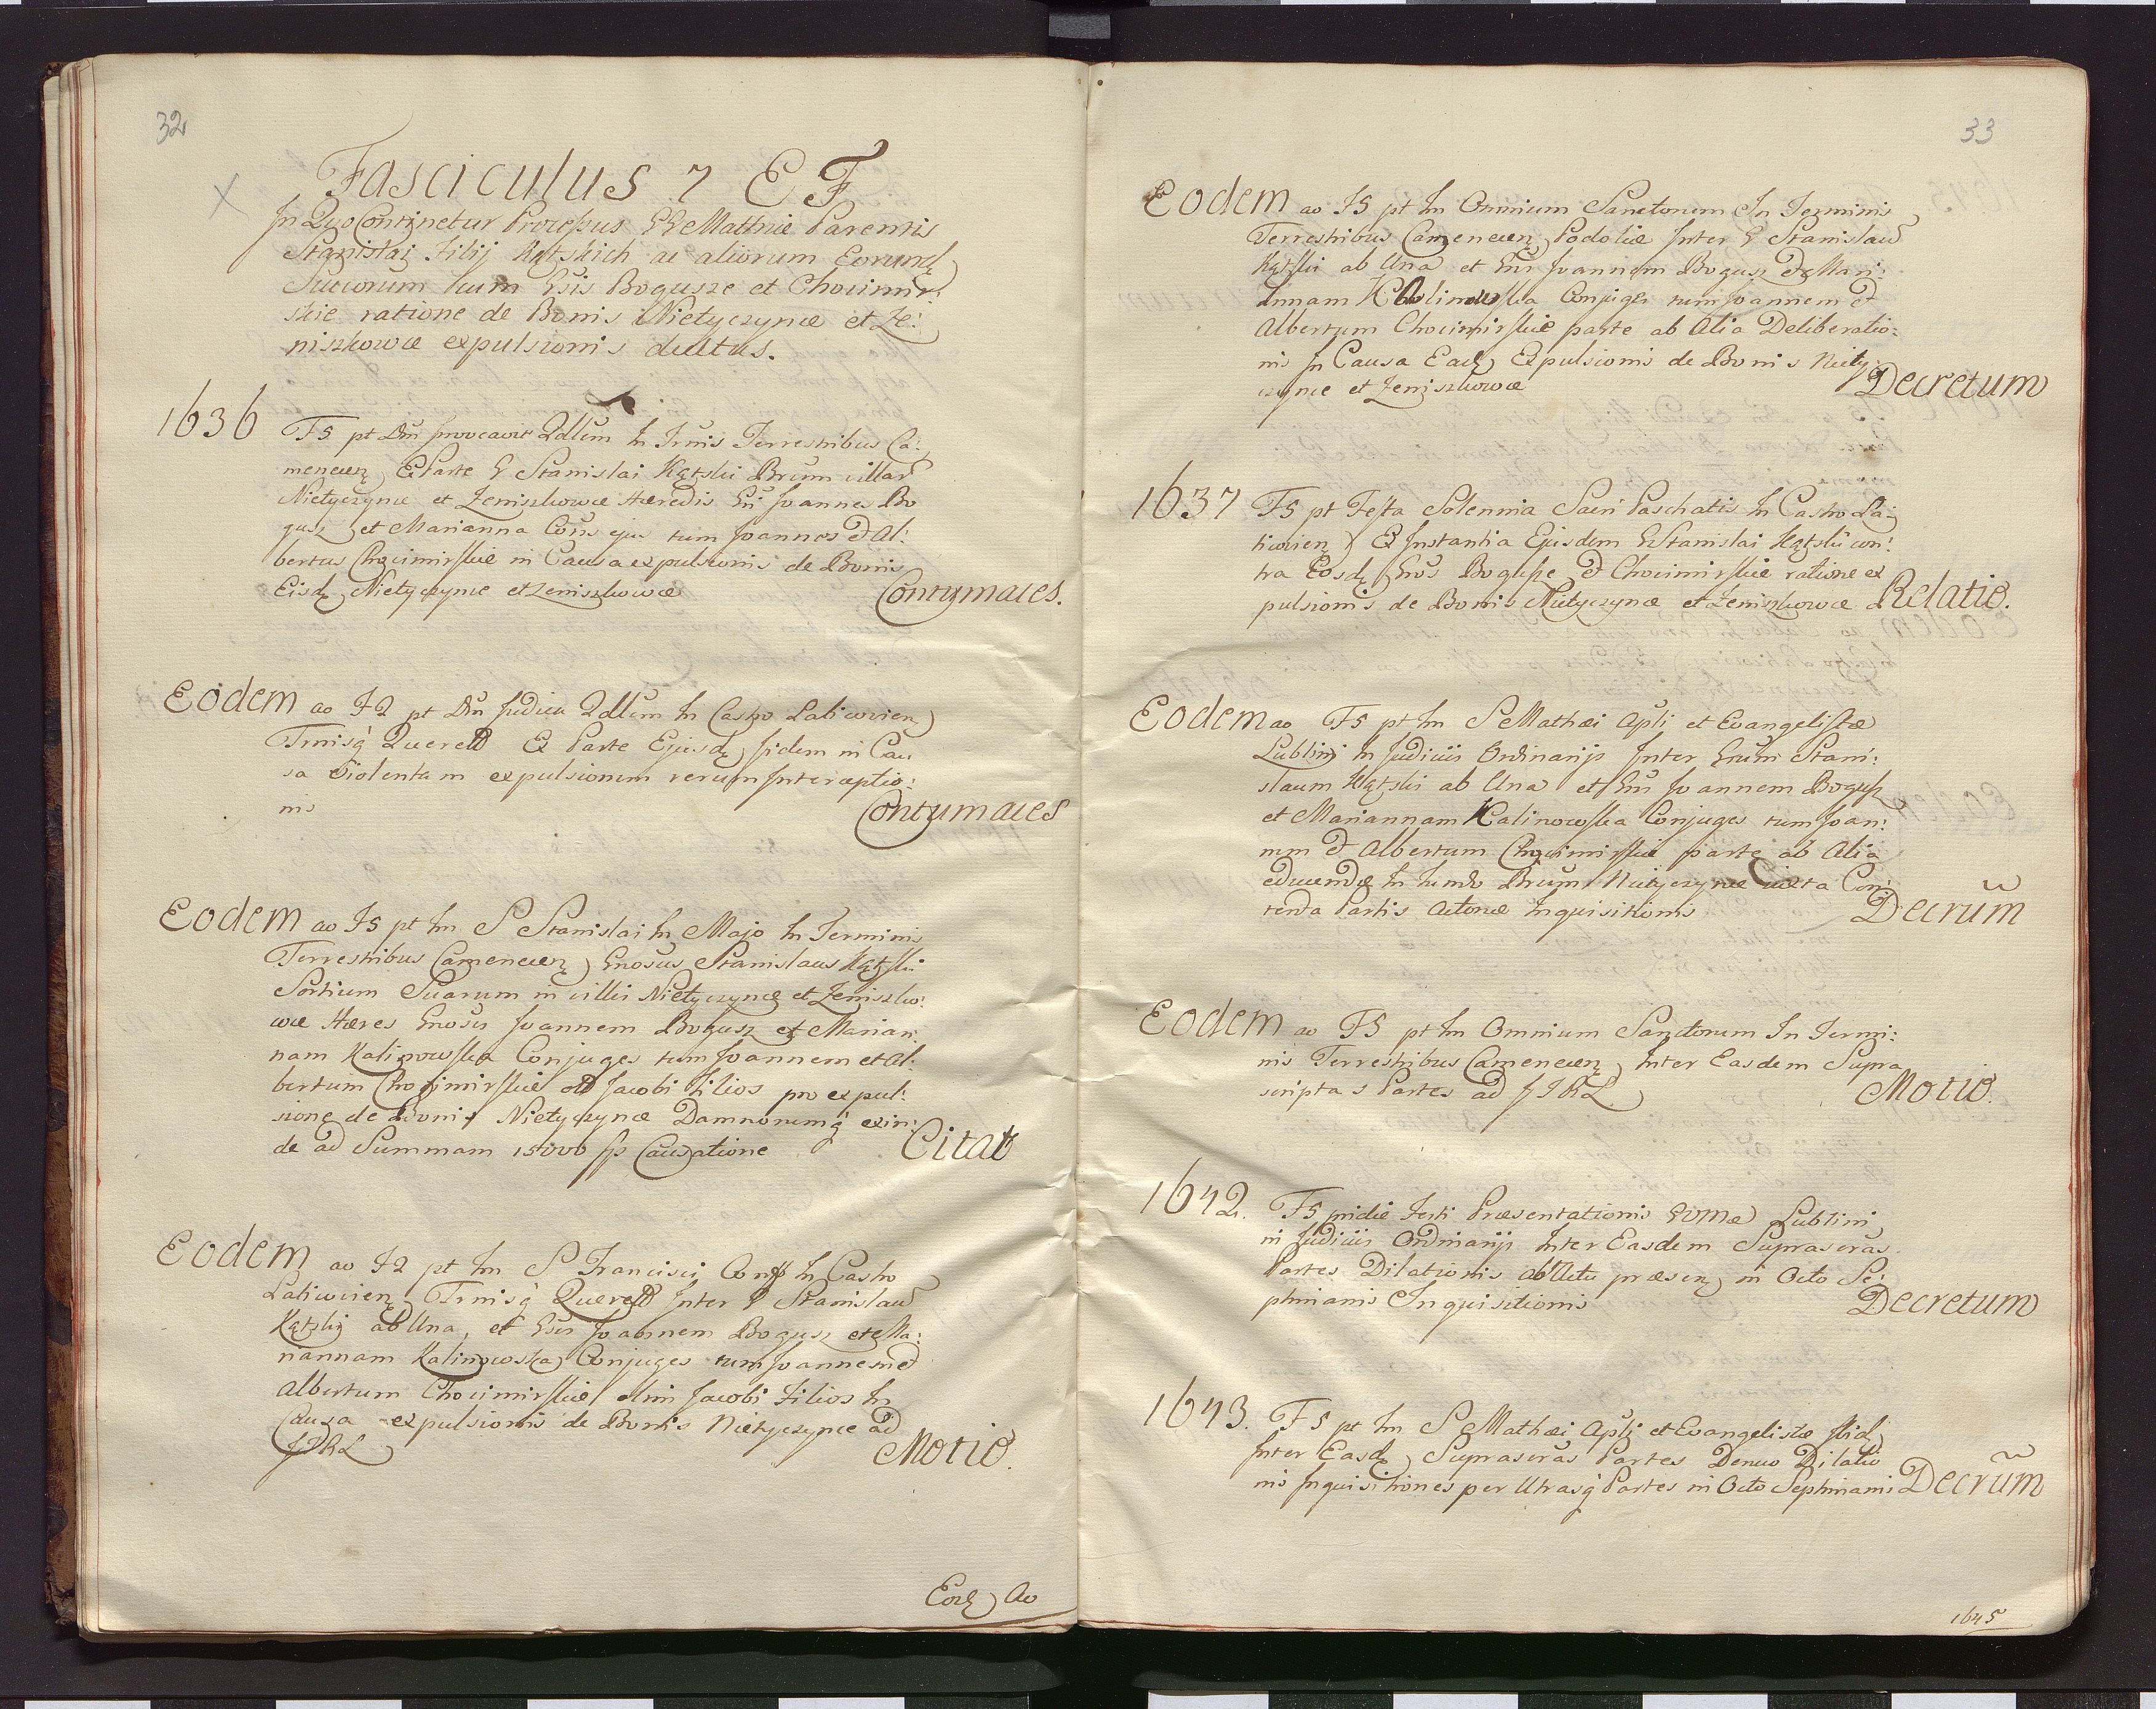 32
Fasciculus 7 E F
In Quo Continetur Processus GG Mathiæ Parentis
Stanislai Filij Kątskich ac aliorum Eorund
Succorum cum Gsis Bogusze et Chocimir:
skie ratione de Bonis Nietyczyncæ et Ze:
niszkowcæ expulsionis ductus.
1636 F5 pt Dn Invocavit Qdlem In Trmis Terrestribus Ca:
menecen Ex Parte G Stanislai Kątzki Brum villar
Nietyczyncæ et Zeniszkowcæ Hæredis Gsi Joannes Bo
gusz et Marianna Cons ejus tum Joannes & Al:
bertus Chocimirskie in Causa expulsionis de Bonis
Eisd Nietyczyncæ et Zeniszkowcæ Contumaces.
Eodem ao F2 pt Dn Judica Qdlem In Castro Laticzovien
Trmisq Querell Ex Parte Ejusd fidem in Cau
sa Violentam expulsionem rerum Interceptio:
nis Contumaces
Eodem ao F5 pt Fm S Stanislai In Majo In Terminis
Terrestribus Camenecen Gnosus Stanislaus Kątzki
Sortium Suarum in villis Nietyczyncæ et Zeniszko:
wcæ Hæres Gnosos Joannem Bogusz et Marian:
nam Kalinowska Conjuges tum Joannem et Al:
bertum Chocimirskie olł Jacobi Filios pro expul:
sione de Bonis Nietyczyncæ Damnorumq exin:
de ad Summam 15000 fp Causatione Citat
Eodem ao F2 pt Fm S Francisci Conff In Castro
Laticzovien Trmisq Querell Inter G Stanislau
Kątzkij ab Una, et Gsos Joannem Bogusz et Ma:
riannam Kalinowska Conjuges tum Joannem &
Albertum Chocimirskie olim Jacobi Filios In
Causa expulsionis de Bonis Nietyczyncæ ad
JJRL Motio.
Eod Ao
33
Eodem ao F5 pt Fm Omnium Sanctorum In Terminis
Terrestribus Camenecen Podoliæ Inter G Stanislau
Kątzki ab Una et Gnos Joannem Bogusz & Mari:
annam Kalinowska Conjuges tum Joannem &
Albertum Chocimirskie parte ab Alia Deliberatio:
nis In Causa Ead Expulsionis de Bonis Niety:
czyncæ et Zeniszkowcæ Decretum
1637 F5 pt Festa Solennia Sacri Paschatis In Castro La:
ticzovien Ex Instantia Ejusdem G Stanislai Kątzki con:
tra Eosd Gnos Bogusze & Chocimirskie ratione ex
pulsionis de Bonis Nietyczyncæ et Zeniszkowcæ Relatio.
Eodem ao F5 pt Fm S Mathæi Apli et Evangelistæ
Lublini In Judiciis Ordinarijs Inter Gnum Stani:
slaum Kątzki ab Una et Gnos Joannem Bogusz
et Mariannam Kalinowska Conjuges tum Joan:
nem & Albertum Chocimirskie parte ab Alia
educendæ In fundo Brum Nietyczyncæ iuxta Con:
tenda Partis Actoreæ Inquisitionis Decrum
Eodem ao F5 pt Fm Omnium Sanctorum In Termi:
nis Terrestribus Camenecen Inter Easdem Supra
scriptas Partes ad JJRL Motio.
1642. F5 pridie Festi Præsentationis BVMæ Lublini
in Judiciis Ordinarijs Inter Easdem Suprascras
Partes Dilationis ab Actu præsen in Octo Se:
ptimanis Inquisitionis Decretum
1643. F5 pt Fm S Mathæi Apli et Evangelistæ Ibid
Inter Easd Suprascras Partes Denuo Dilatio
nis Inquisitiones per Utrasq Partes in Octo Septimanis Decrum
1645